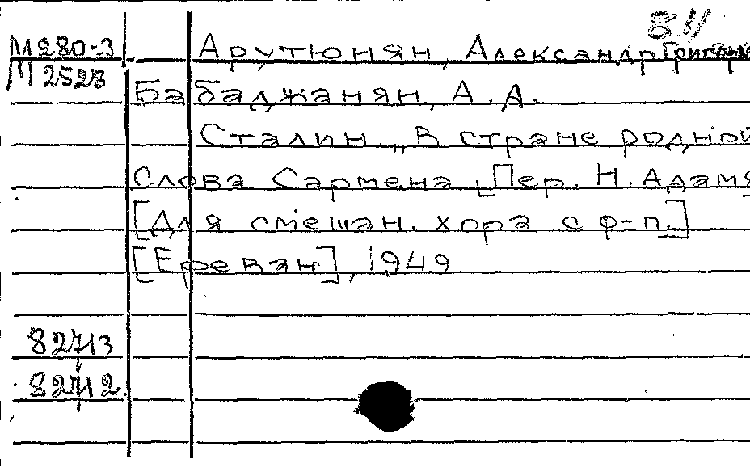 8.11
М280-3 Арутюнян, Александр Григорь
М2523
Бабаджанян, А. А.
Сталин. „В стране родной
Слова Сармена [Пер. Н. Адамя
[Для смешан. хора с ф-п.]
[Ереван], 1949
82713
82712